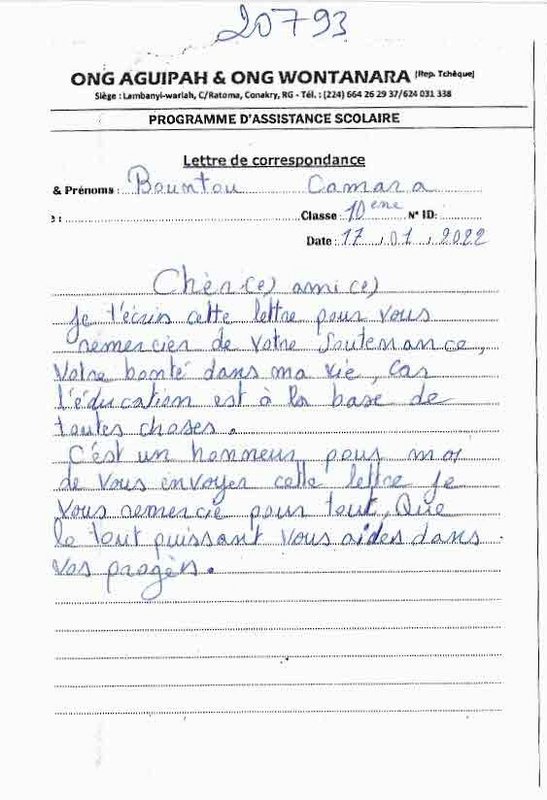 20793
ONG AGUIPAH & ONG WONTANARA (Rep. Tchèque)
Siège : Lambanyi-wariah, C/Ratoma, Conakry, RG - Tél. : (224) 664 26 29 37/624 031 338
PROGRAMME D'ASSISTANCE SCOLAIRE
Lettre de correspondance
& Prénoms : Bountou Camara
e : Classe : 10ème N° ID:
Date : 17.01.2022
Chèr(e) ami(e)
Je t'écris cette lettre pour vous
remercier de votre soutenance,
Votre bonté dans ma vie, Car
l'éducation est à la base de
toutes choses.
C'est un honneur pour moi
de vous envoyer cette lettre je
vous remercie pour tout, Que
le tout puissant vous aides dans
vos progès.